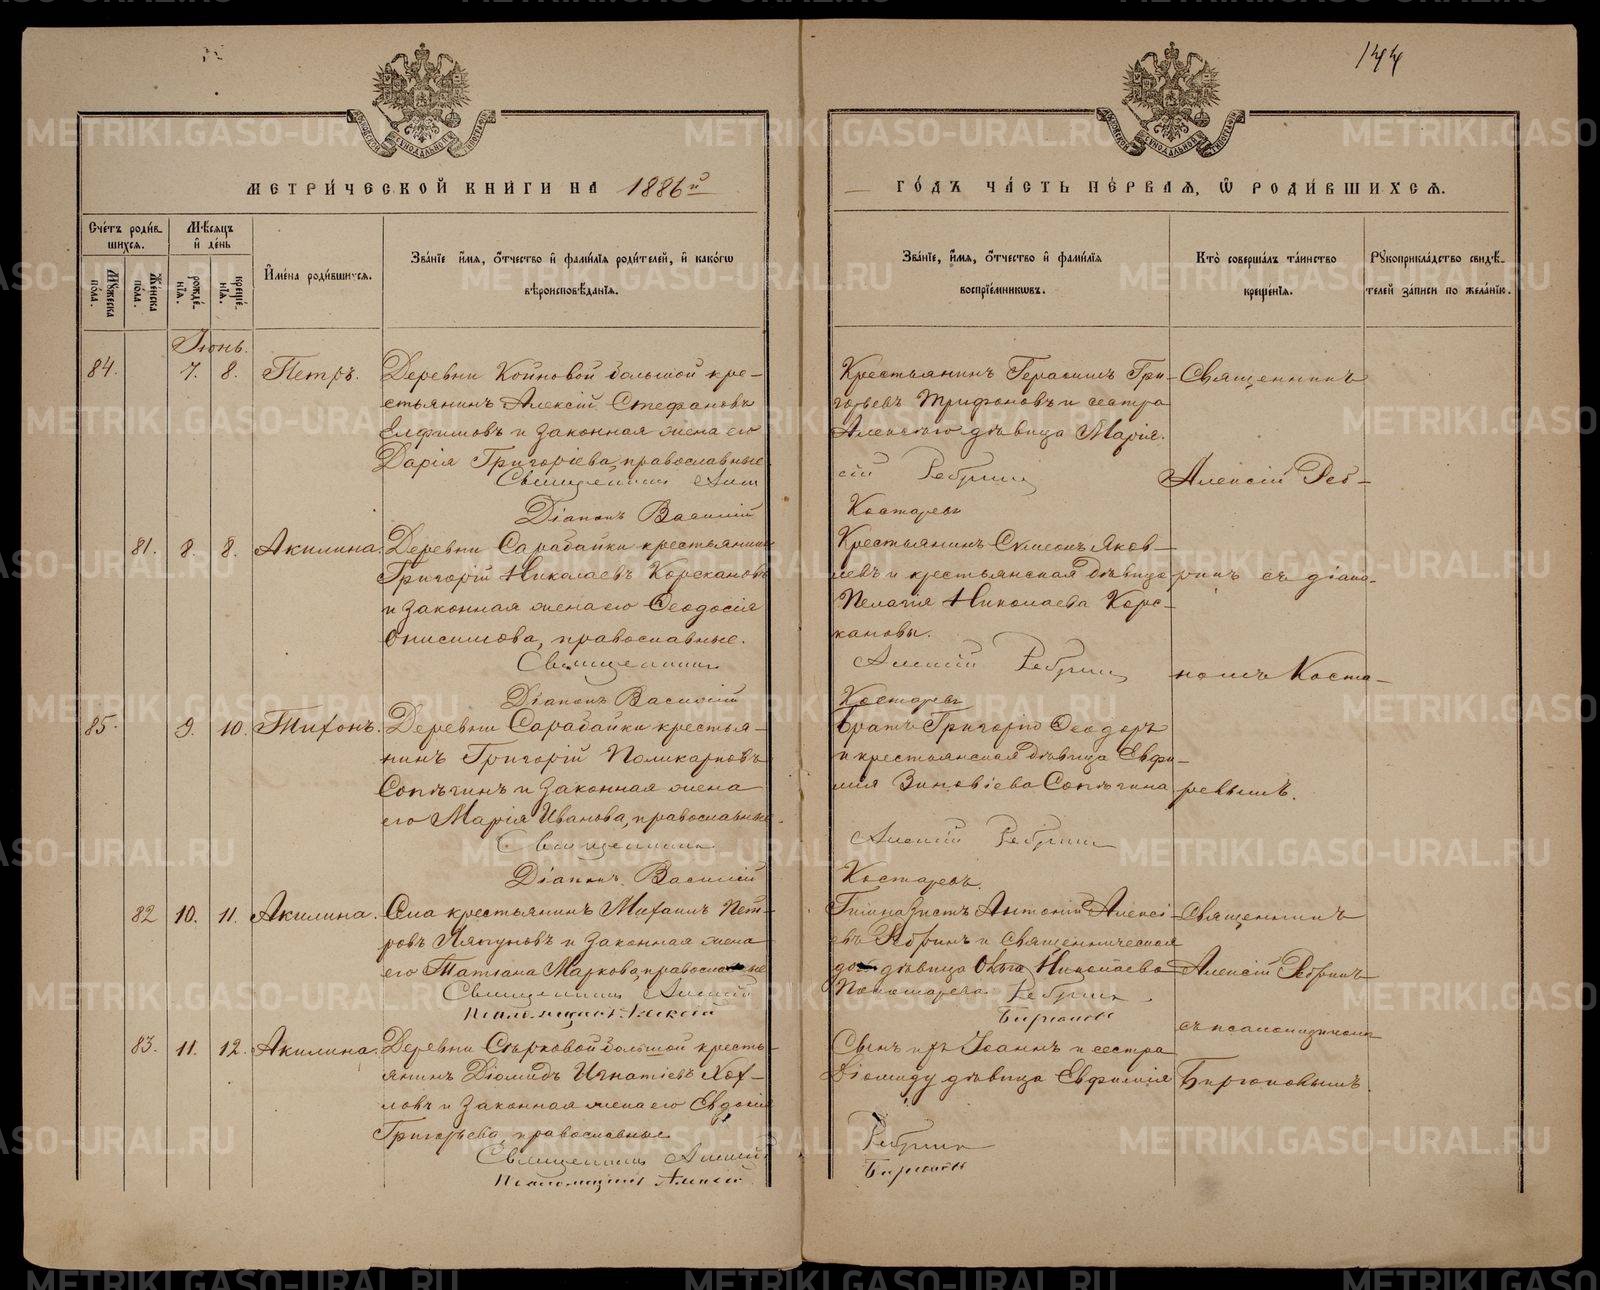 144
МЕТРИ́ЧЕСКОЙ КНИ́ГИ НА 1886й
ГО́ДЪ ЧА́СТЬ ПЕ́РВАЯ, Ѿ РОДИ́ВШИХСЯ.
Сче́тъ роди́в
шихся.
Мꙋ́жеска
по́ла.
Же́нска
по́ла.
Мѣ́сяцъ
и҆ де́нь
рожде́
нїѧ.
креще́
нїѧ.
И҆мена̀ роди́вшихся.
Зва́нїе и҆́мя, ѻ҆́тчество и҆ фами́лїя роди́телей, и҆ како́гѡ
вѣроисповѣ́данїѧ.
Зва́нїе, и҆́мя, ѻ҆́тчество и҆ фами́лїя
воспрїе́мникѡвъ.
Кто̀ соверша́лъ та́инство
креще́нїѧ.
Рꙋкоприкла́дство свидѣ́-
телей за́писи по жела́нїю.
Іюнь.
84. 7. 8. Петръ.
Деревни Койновой большой кре-
стьянинъ Алексій Стефановъ
Елфимовъ и законная жена его
Дарія Григоріева, православные
Священникъ Алек
Діаконъ Василій
Крестьянинъ Герасимъ Гри-
горьевъ Трифоновъ и сестра
Алексѣю дѣвица Марія.
сій Ребринъ
Костаревъ
Священникъ
Алексій Реб-
81. 8. 8. Акилина.
Деревни Сарабайки крестьянинъ
Григорій Николаевъ Корекановъ
и законная жена его Ѳеодосія
Онисимова, православные.
Священникъ
Діаконъ Василій
Крестьянинъ Сѵмеонъ Яков-
левъ и крестьянская дѣвица
Пелагія Николаева Коре-
кановы.
Алексій Ребринъ
Костаревъ
ринъ съ діако-
номъ Коста-
85. 9. 10. Тихонъ.
Деревни Сарабайки крестья-
нинъ Григорій Поликарповъ
Сопѣгинъ и законная жена
его Марія Иванова, православные.
Священникъ
Діаконъ Василій
Братъ Григорію Ѳеодоръ
и крестьянская дѣвица Евфи-
мія Зиновіева Сопѣгина
Алексій Ребринъ
Костаревъ.
ревымъ.
82 10. 11. Акилина.
Села крестьянинъ Михаилъ Пет-
ровъ Ляпуновъ и законная жена
его Татіана Маркова, православные
Священникъ Алексій
Псаломщикъ Алексій
Гимназистъ Антоній Алексі-
евъ Ребринъ и священническая
дѣвица Ольга Николаева
Пономарева. Ребринъ
Бирюковъ
Священникъ
Алексій Ребринъ
съ псаломщикомъ
Бирюковымъ.
83. 11. 12. Акилина.
Деревни Сѣрковой большой кресть-
янинъ Діомидъ Игнатіевъ Хох-
ловъ и законная жена его Евдокія
Григорьева, православные
Священникъ Алексій
Псаломщикъ Алексій
Сынъ ихъ Іоаннъ и сестра
Діомиду дѣвица Евфимія
Ребринъ
Бирюковъ